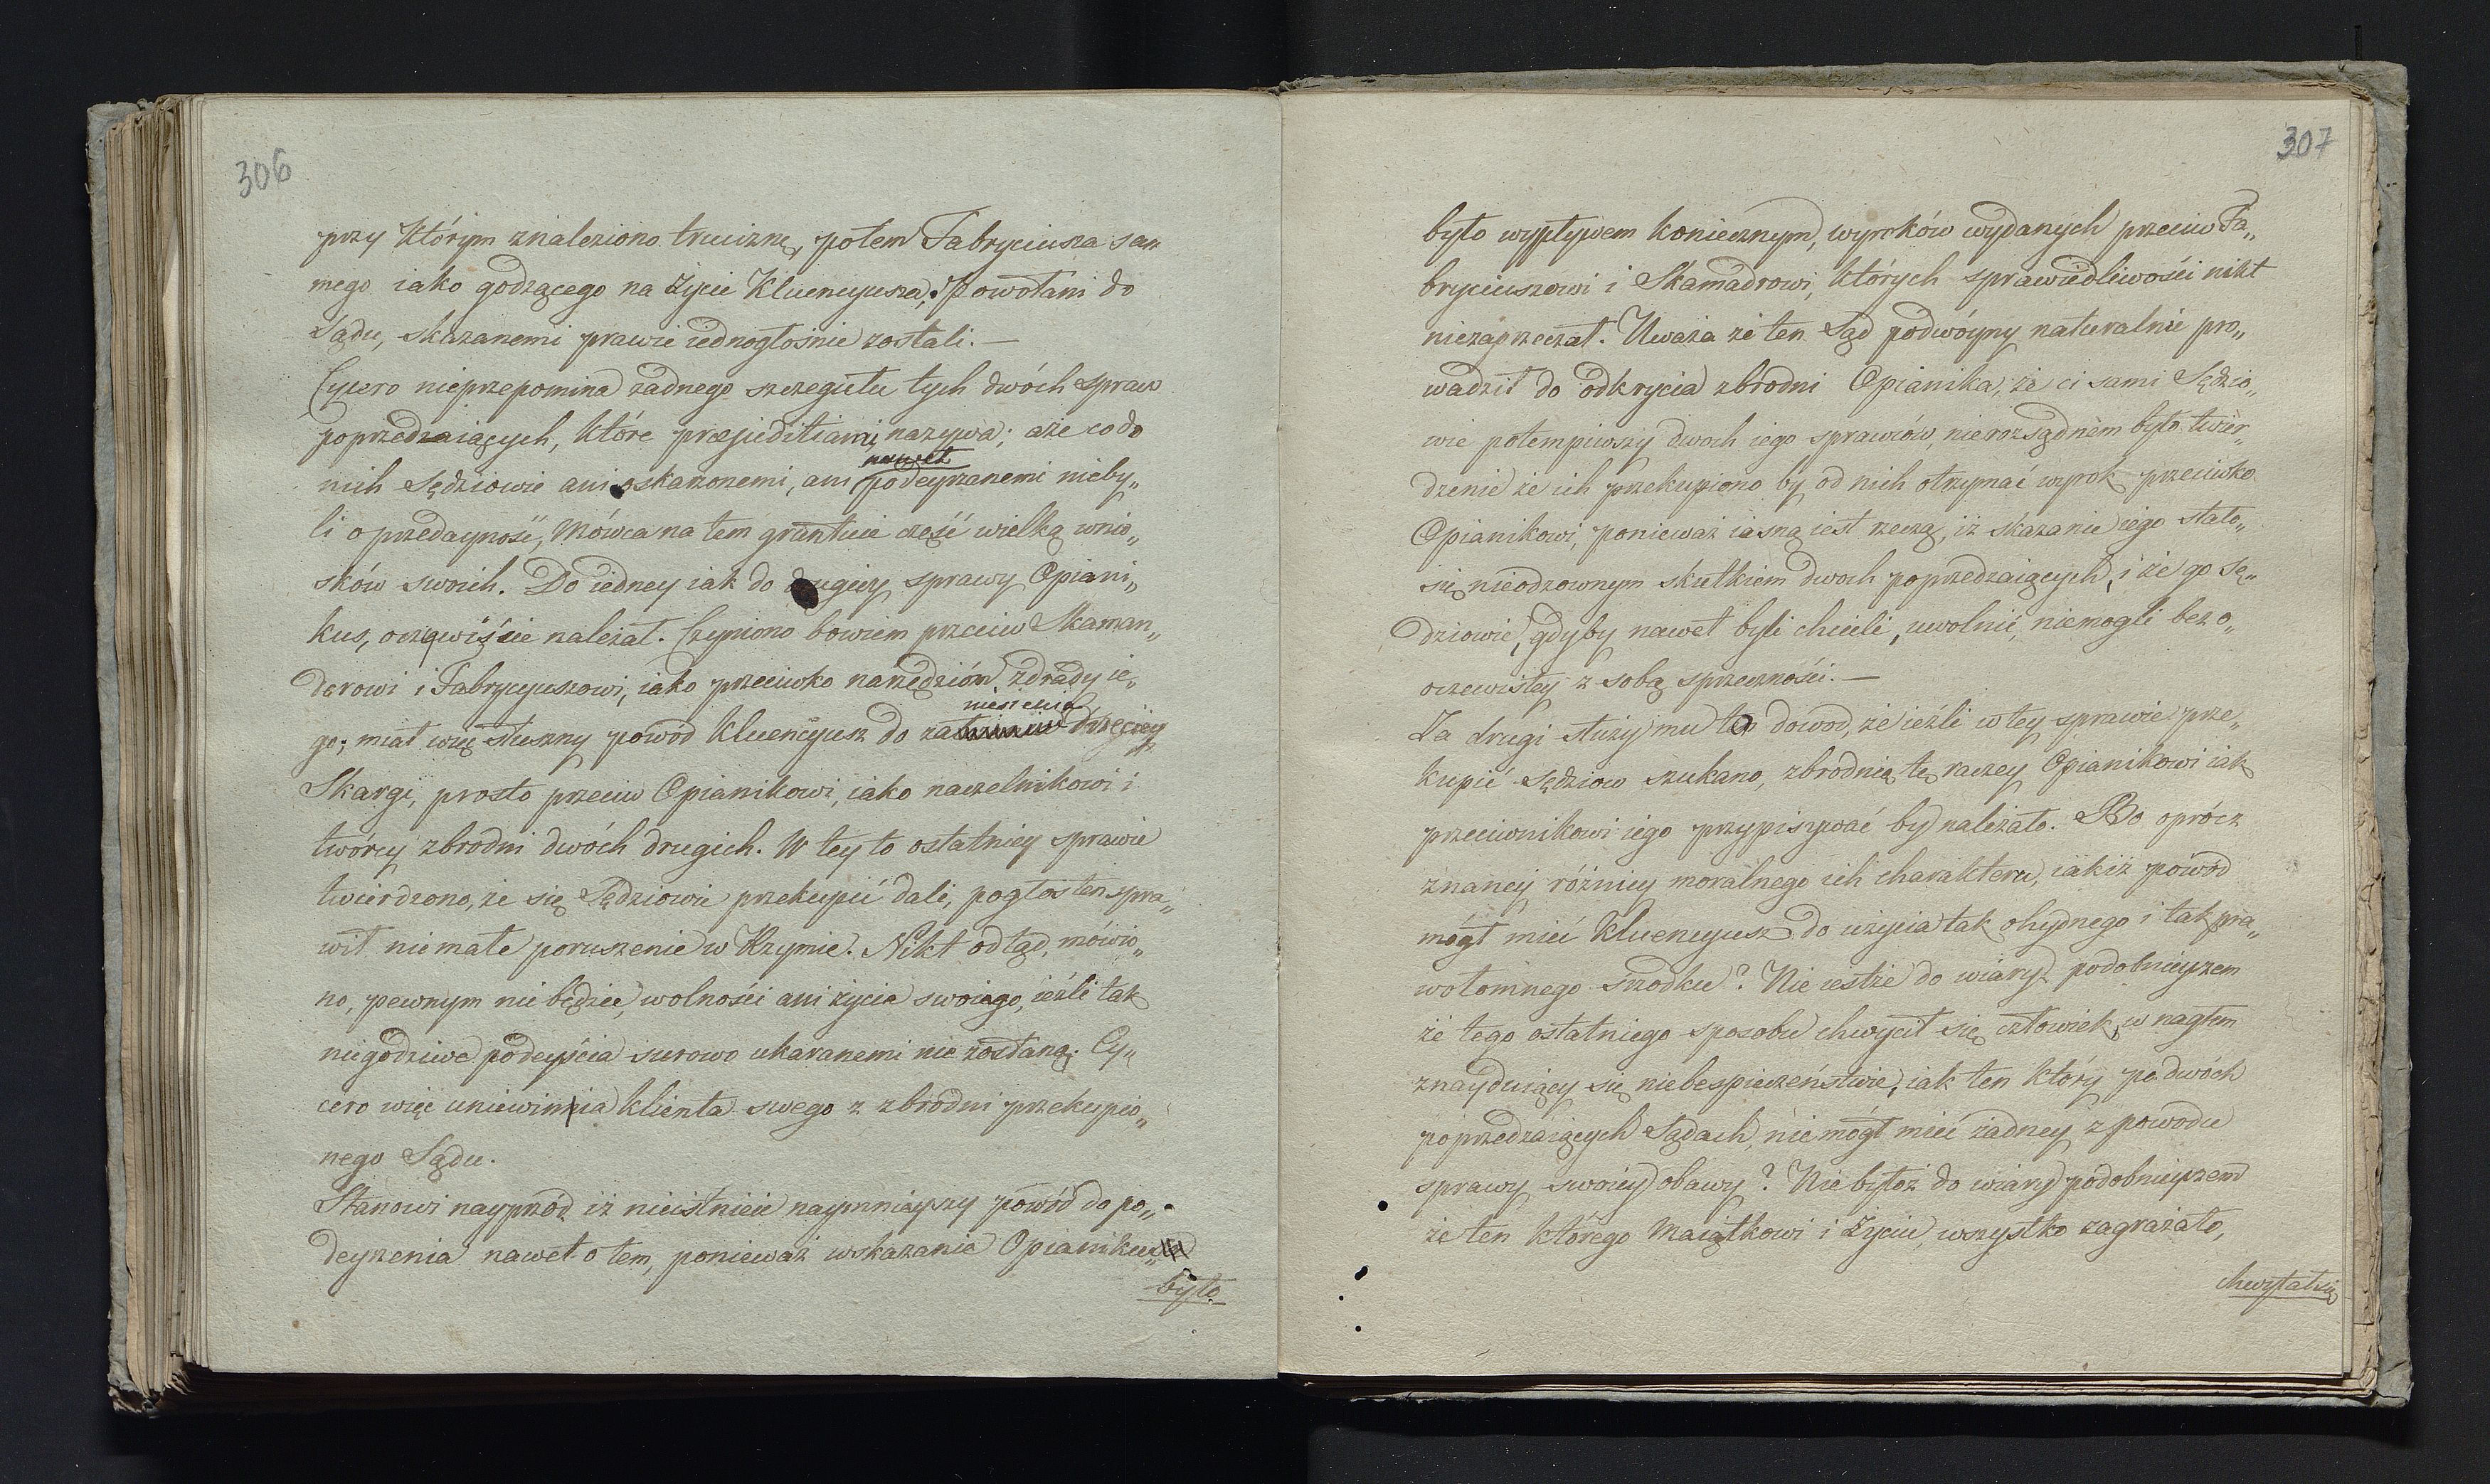 306
przy którym znaleziono truciznę, potem Fabryciusza sa„
mego iako godzącego na życie Kluencyusza, Powołani do
Sądu, skazanemi prawie iednogłośnie zostali. —
Cycero nieprzepomina żadnego szczegułu tych dwóch spraw
poprzedzaiących, które præjuditiami nazywa; aże co do
nawet
nich Sędziowie ani oskarżonemi, ani podeyrzanemi nieby„
li o przedayność, Mówca na tem gruntuie część wielką wnio„
sków swoich. Do iedney iak do drugiey sprawy Opiani„
kus, oczywiście należał. Czyniono bowiem przeciw Skaman„
derowi i Fabrycyuszowi, iako przeciwko narzędziom zdrady ie„
niesienia
go; miał więc słuszny powód Kluencyusz do za trzeciey
Skargi, prosto przeciw Opianikowi, iako naczelnikowi i
twórcy zbrodni dwóch drugich. W tey to ostatniey sprawie
twierdzono, że się Sędziowie przekupić dali, pogłos ten spra„
wił nie małe poruszenie w Rzymie. Nikt odtąd, mówio„
no, pewnym nie będzie, wolności ani życia swoiego, ieźli tak
niegodziwe podeyścia surowo ukaranemi nie zostaną. Cy„
cero więc uniewinnia klienta swego z zbrodni przekupio„
nego Sądu.
Stanowi nayprzód iż nieistnieie naymnieyszy powód do po„
deyrzenia nawet o tem, ponieważ wskazanie Opianiku„
było
307
było wypływem koniecznym, wyroków wydanych przeciw Fa„
bryciuszowi i Skamadrowi, których sprawiedliwości nikt
niezaprzeczał. Uważa że ten Sąd podwóyny naturalnie pro„
wadził do odkrycia zbrodni Opianika, że ci sami Sędzio„
wie potempiwszy dwoch iego sprawców, nierozsądnem było twier„
dzenie że ich przekupiono by od nich otrzymać wyrok przeciwko
Opianikowi, ponieważ iasną iest rzeczą, iż skazanie iego stało„
się nieodzownym skutkiem dwoch poprzedzaiących, i że go Sę„
dziowie, gdyby nawet byli chcieli, uwolnić, niemogli bez o„
oczewistey z sobą sprzeczności. —
Za drugi służy mu to dowod, że ieźli w tey sprawie prze„
kupić Sędziow szukano, zbrodnię tę raczey Opianikowi iak
przeciwnikowi iego przypisywać by należało. Bo oprócz
znaney różnicy moralnego ich charakteru, iakiż powód
mógł mieć Kluencyusz do użycia tak ohydnego i tak pra„
wołomnego srzodku? Nie iestże do wiary podobnieyszem
że tego ostatniego sposobu chwycił się człowiek, w nagłem
znayduiący się niebespieczeństwie, iak ten który po dwóch
poprzedzaiących Sądach, nie mógł mieć żadney z powodu
sprawy swoiey obawy? Nie byłoż do wiary podobnieyszem
że ten którego Maiątkowi i Życiu, wszystko zagrażało,
chwytał się